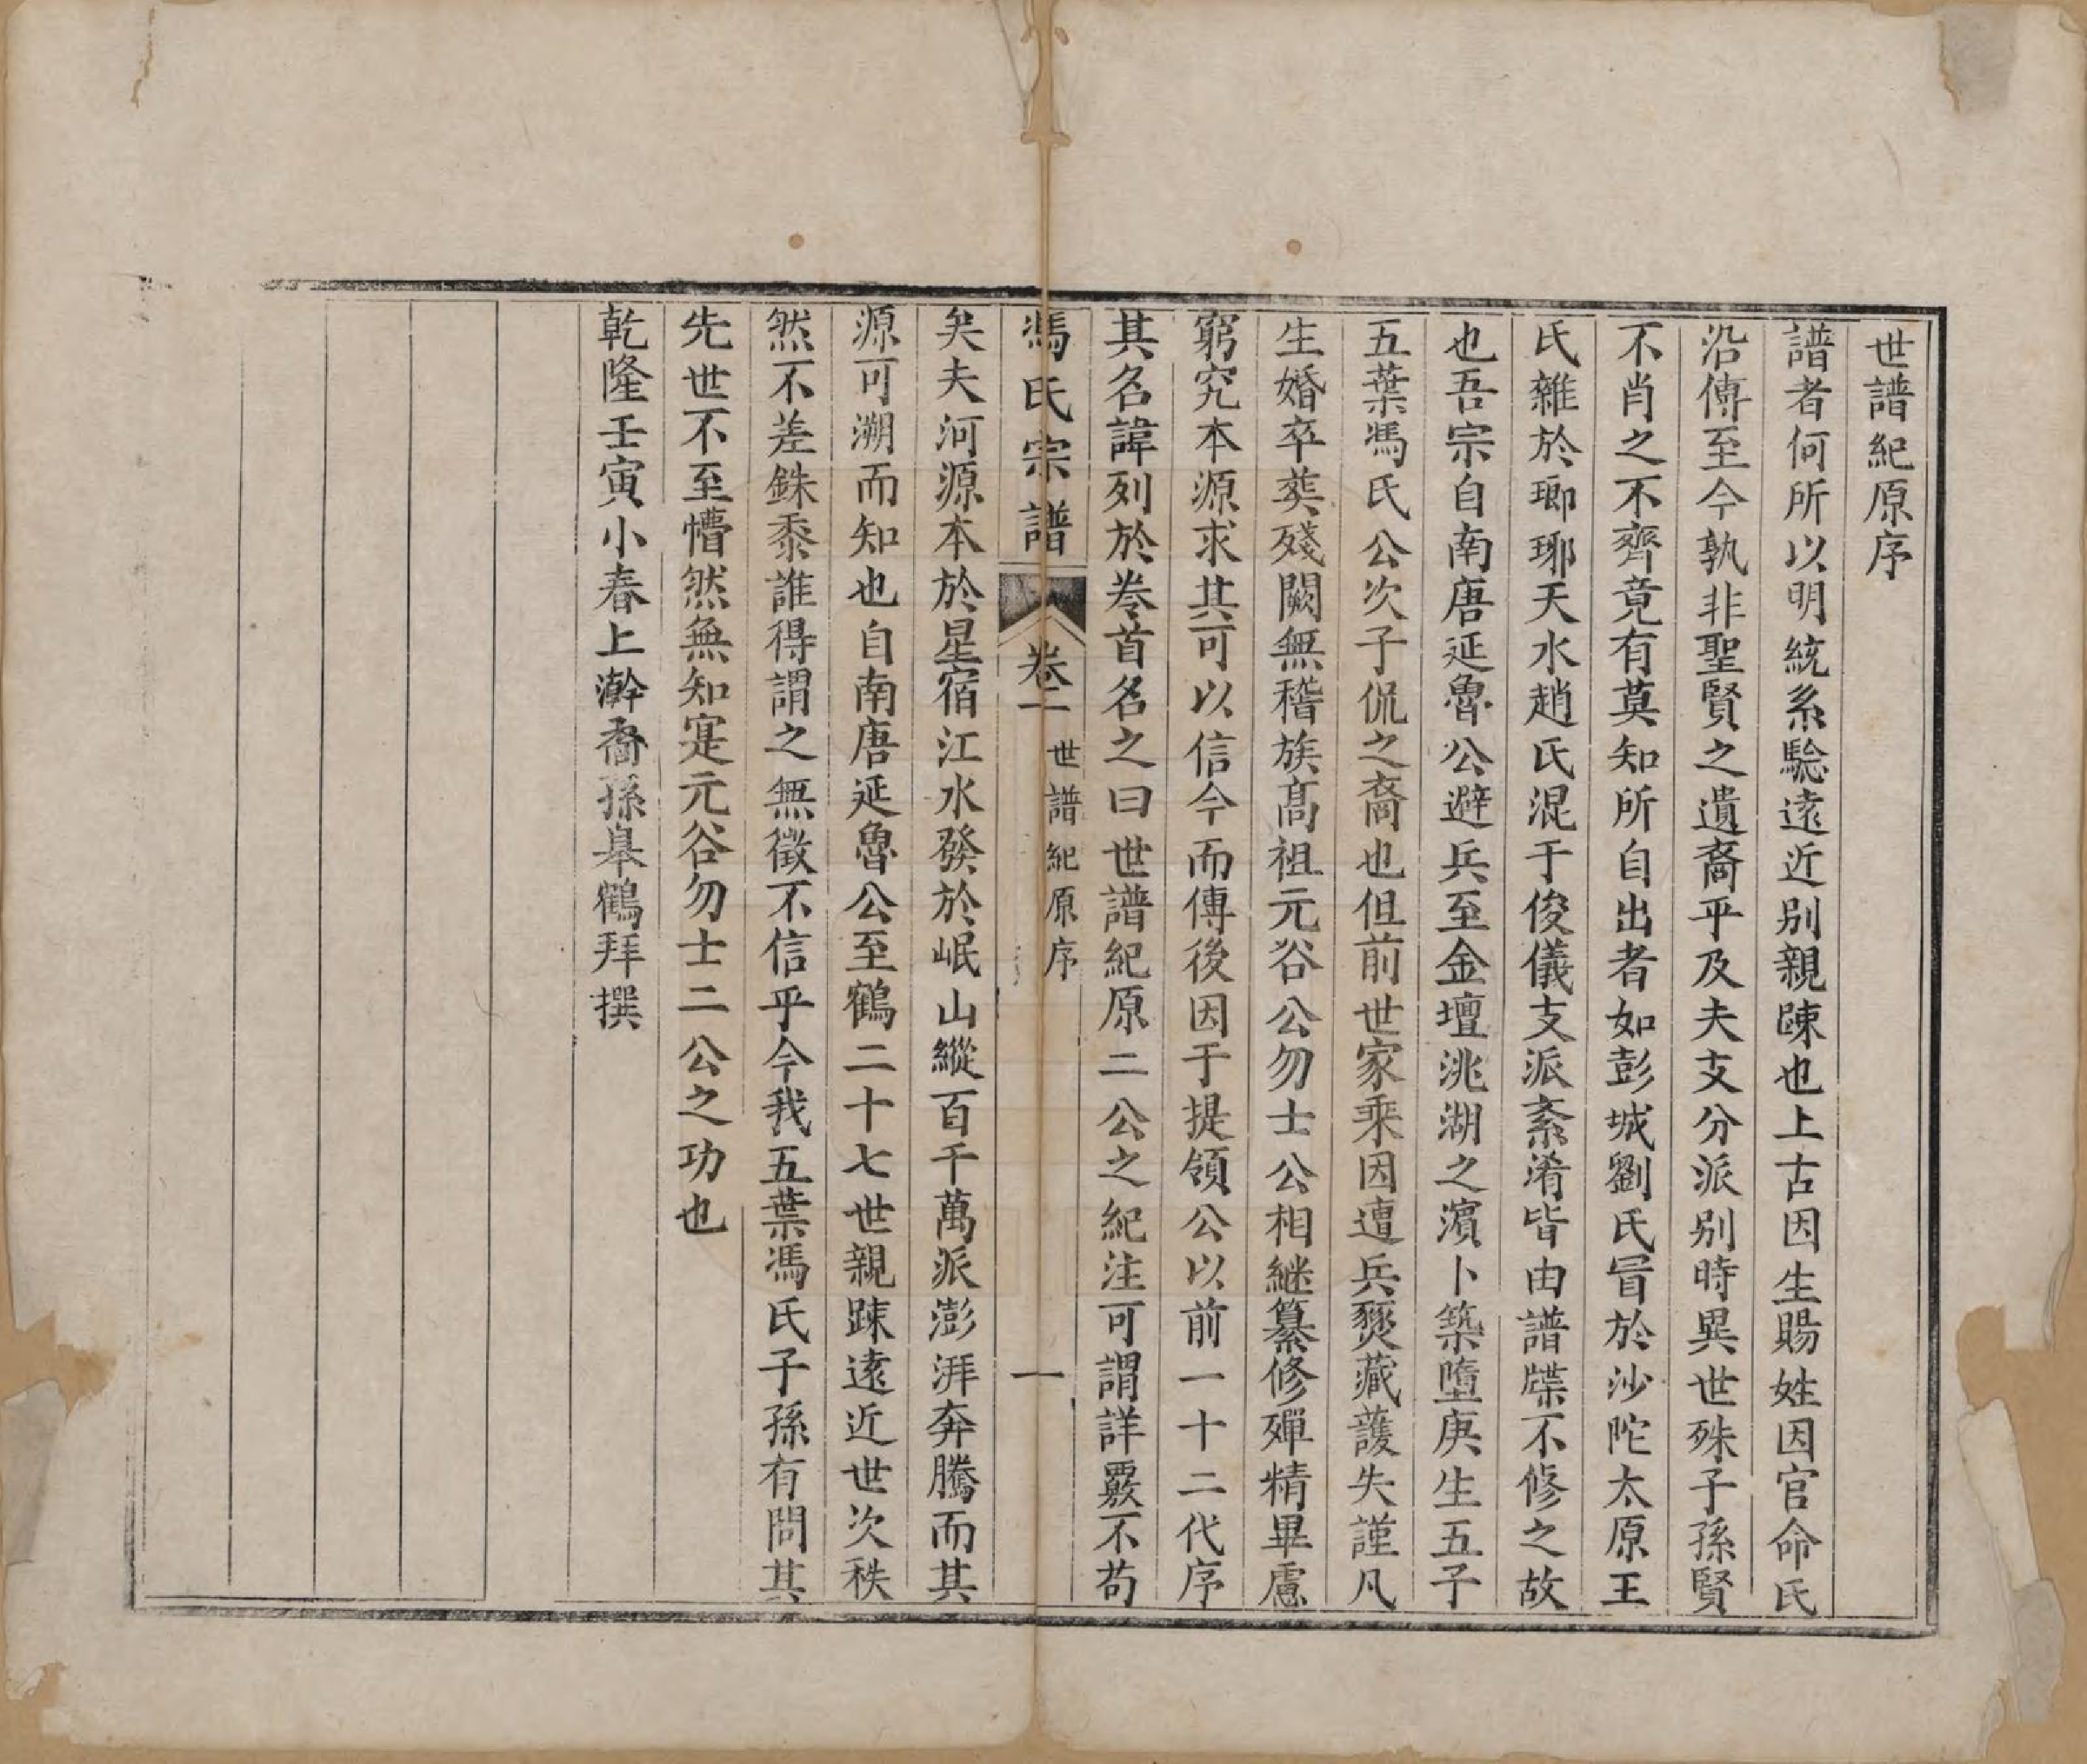 世譜紀原序
譜者何所以明統系驗遠近别親踈也上古因生賜姓因官命氏
沿傳至今孰非聖賢之遺裔乎及夫支分派别時異世殊子孫賢
不肖之不齊竟有莫知所自出者如彭城劉氏冐於沙陀太原王
氏雜於瑯琊天水趙氏混于俊儀支派紊淆皆由譜牒不修之故
也吾宗自南唐延魯公避兵至金壇洮湖之濱卜築墮庚生五子
五葉馮氏公次子侃之裔也但前世家乘因遭兵燹藏護失謹凡
生婚卒塟殘闕無稽族髙祖元谷公勿士公相継纂修殫精畢慮
窮究本源求其可以信今而傳後因于提領公以前一十二代序
其名諱列於卷首名之曰世譜紀原二公之紀注可謂詳覈不苟
馮氏宗譜 卷一 世譜紀原序 一
矣夫河源本於星宿江水發於岷山縱百千萬派澎湃奔騰而其
源可溯而知也自南唐延魯公至鶴二十七世親踈遠近世次秩
然不差銖黍誰得謂之無徵不信乎今我五葉馮氏子孫有問其
先世不至懵然無知寔元谷勿士二公之功也
乾隆壬寅小春上澣裔孫皋鶴拜撰